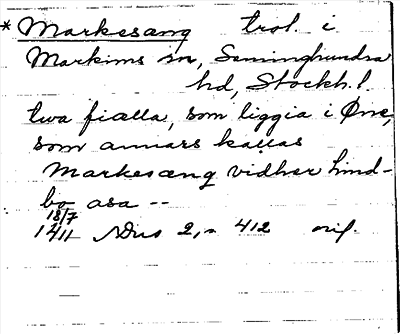 * Markesæng trol. i
Markims sn, Seminghundra
hd, Stockh. l.
twa fiælla, som liggia i Øne,
som annars kallas
Markesæng vidher lind-
bo asa --
18/7
1411 NDus 2, s 412 orig.